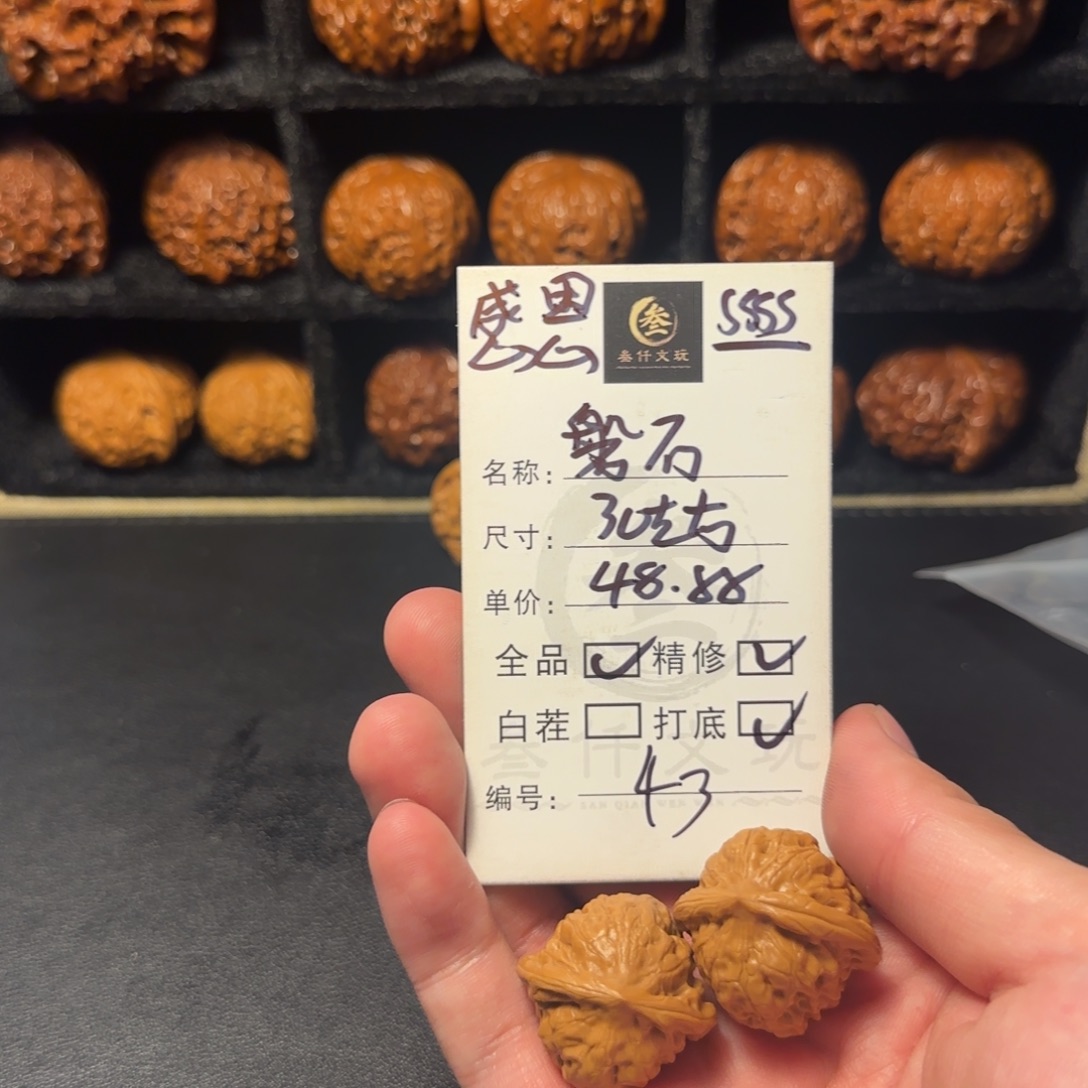 感恩
SSSS
叁仟文玩
名称: 磐石
尺寸: 30左右
单价: 48.88
全品 ✓ 精修 ✓
白茬 打底 ✓
编号: 43
叁仟文玩